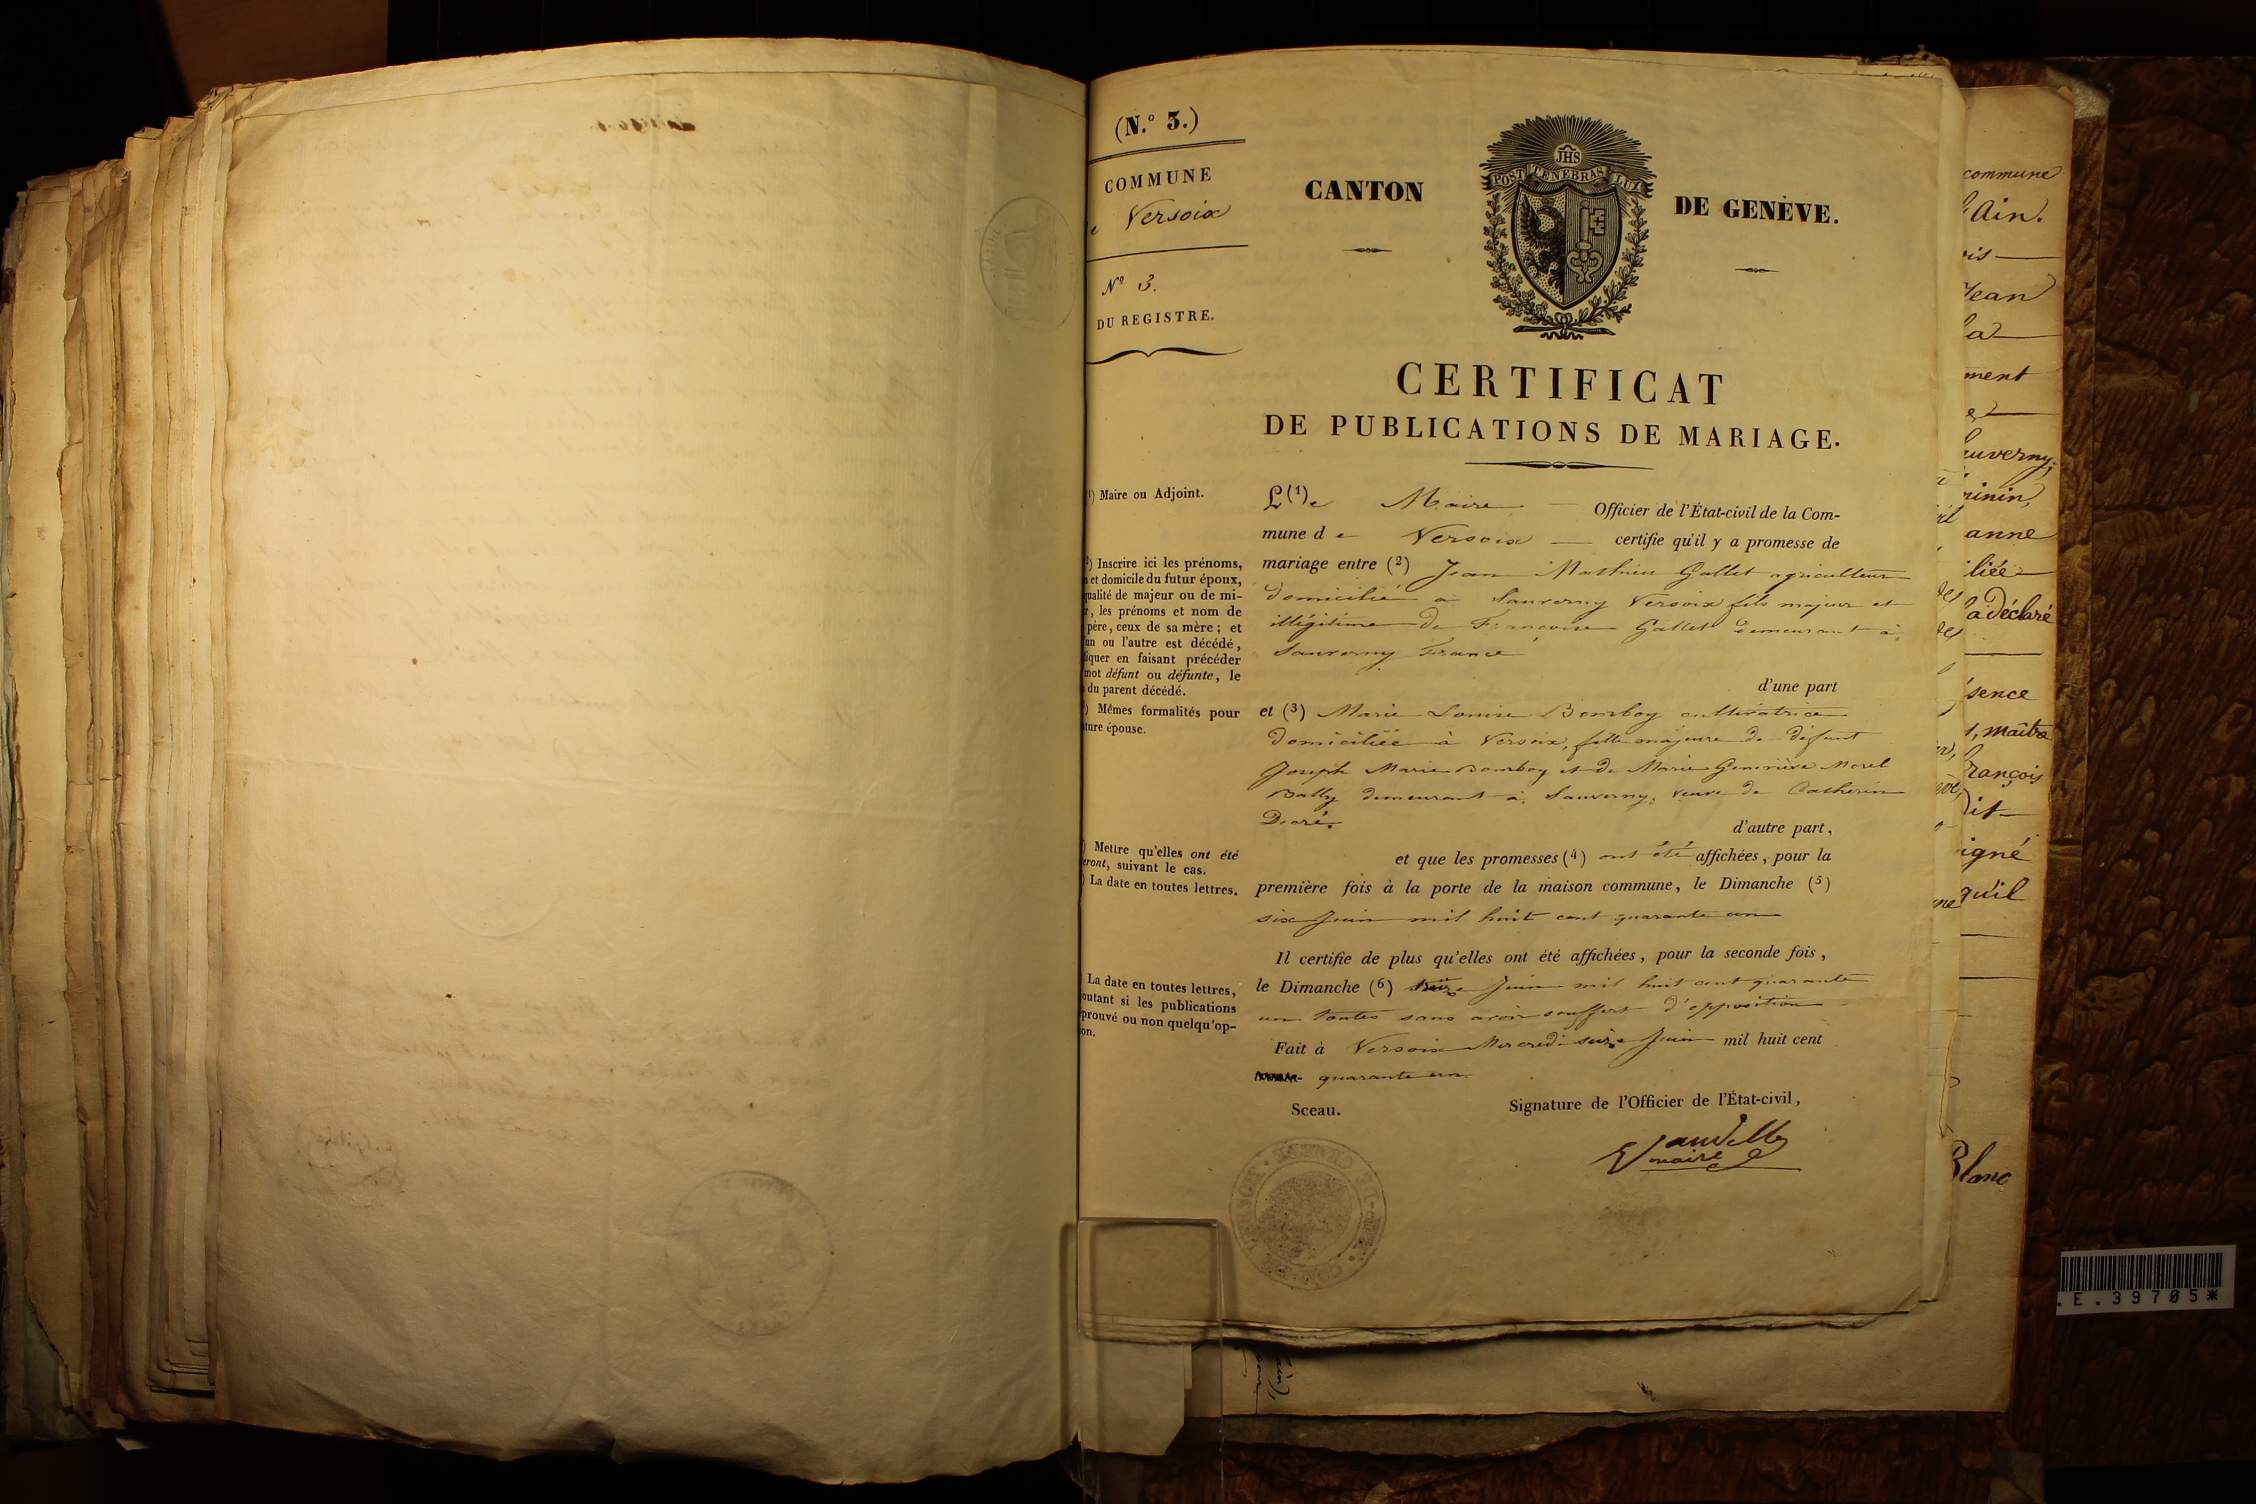 (N.º 3.)
COMMUNE
Versoix
Nº 3.
DU REGISTRE.
JHS
POST TENEBRAS LUX
CANTON DE GENÈVE.
CERTIFICAT
DE PUBLICATIONS DE MARIAGE.
1) Maire ou Adjoint.
2) Inscrire ici les prénoms,
et domicile du futur époux,
qualité de majeur ou de mi-
, les prénoms et nom de
père, ceux de sa mère ; et
un ou l'autre est décédé,
iquer en faisant précéder
mot défunt ou défunte, le
du parent décédé.
) Mêmes formalités pour
ture épouse.
) Mettre qu'elles ont été
eront, suivant le cas.
) La date en toutes lettres.
La date en toutes lettres,
outant si les publications
prouvé ou non quelqu'op-
on.
L(1)e Maire Officier de l'État-civil de la Com-
mune de Versoix certifie qu'il y a promesse de
mariage entre (2) Jean Mathieu Gallet agriculteur
domicilié à Sauverny Versoix fils majeur et
illégitime de Françoise Gallet demeurant à
Sauverny France
d'une part
et (3) Marie Louise Bomboy cultivatrice
domiciliée à Versoix, fille majeure de défunt
Joseph Marie Bomboy et de Marie Geneviève Morel
Bally demeurant à Sauverny, veuve de Catherin
d'autre part,
et que les promesses (4) ont été affichées, pour la
première fois à la porte de la maison commune, le Dimanche (5)
six Juin mil huit cent quarante un
Il certifie de plus qu'elles ont été affichées, pour la seconde fois,
le Dimanche (6) treize Juin mil huit cent quarante
un toutes sans avoir souffert d'opposition
Fait à Versoix Mercredi seize Juin mil huit cent
quarante un.
Sceau. Signature de l'Officier de l'État-civil,
maire
commune
l'Ain.
Jean
la
ment
Sauverny;
anne
liée
a déclaré
sence
, maître
François
dit
igné
qu'il
Blanc
.E.39705*